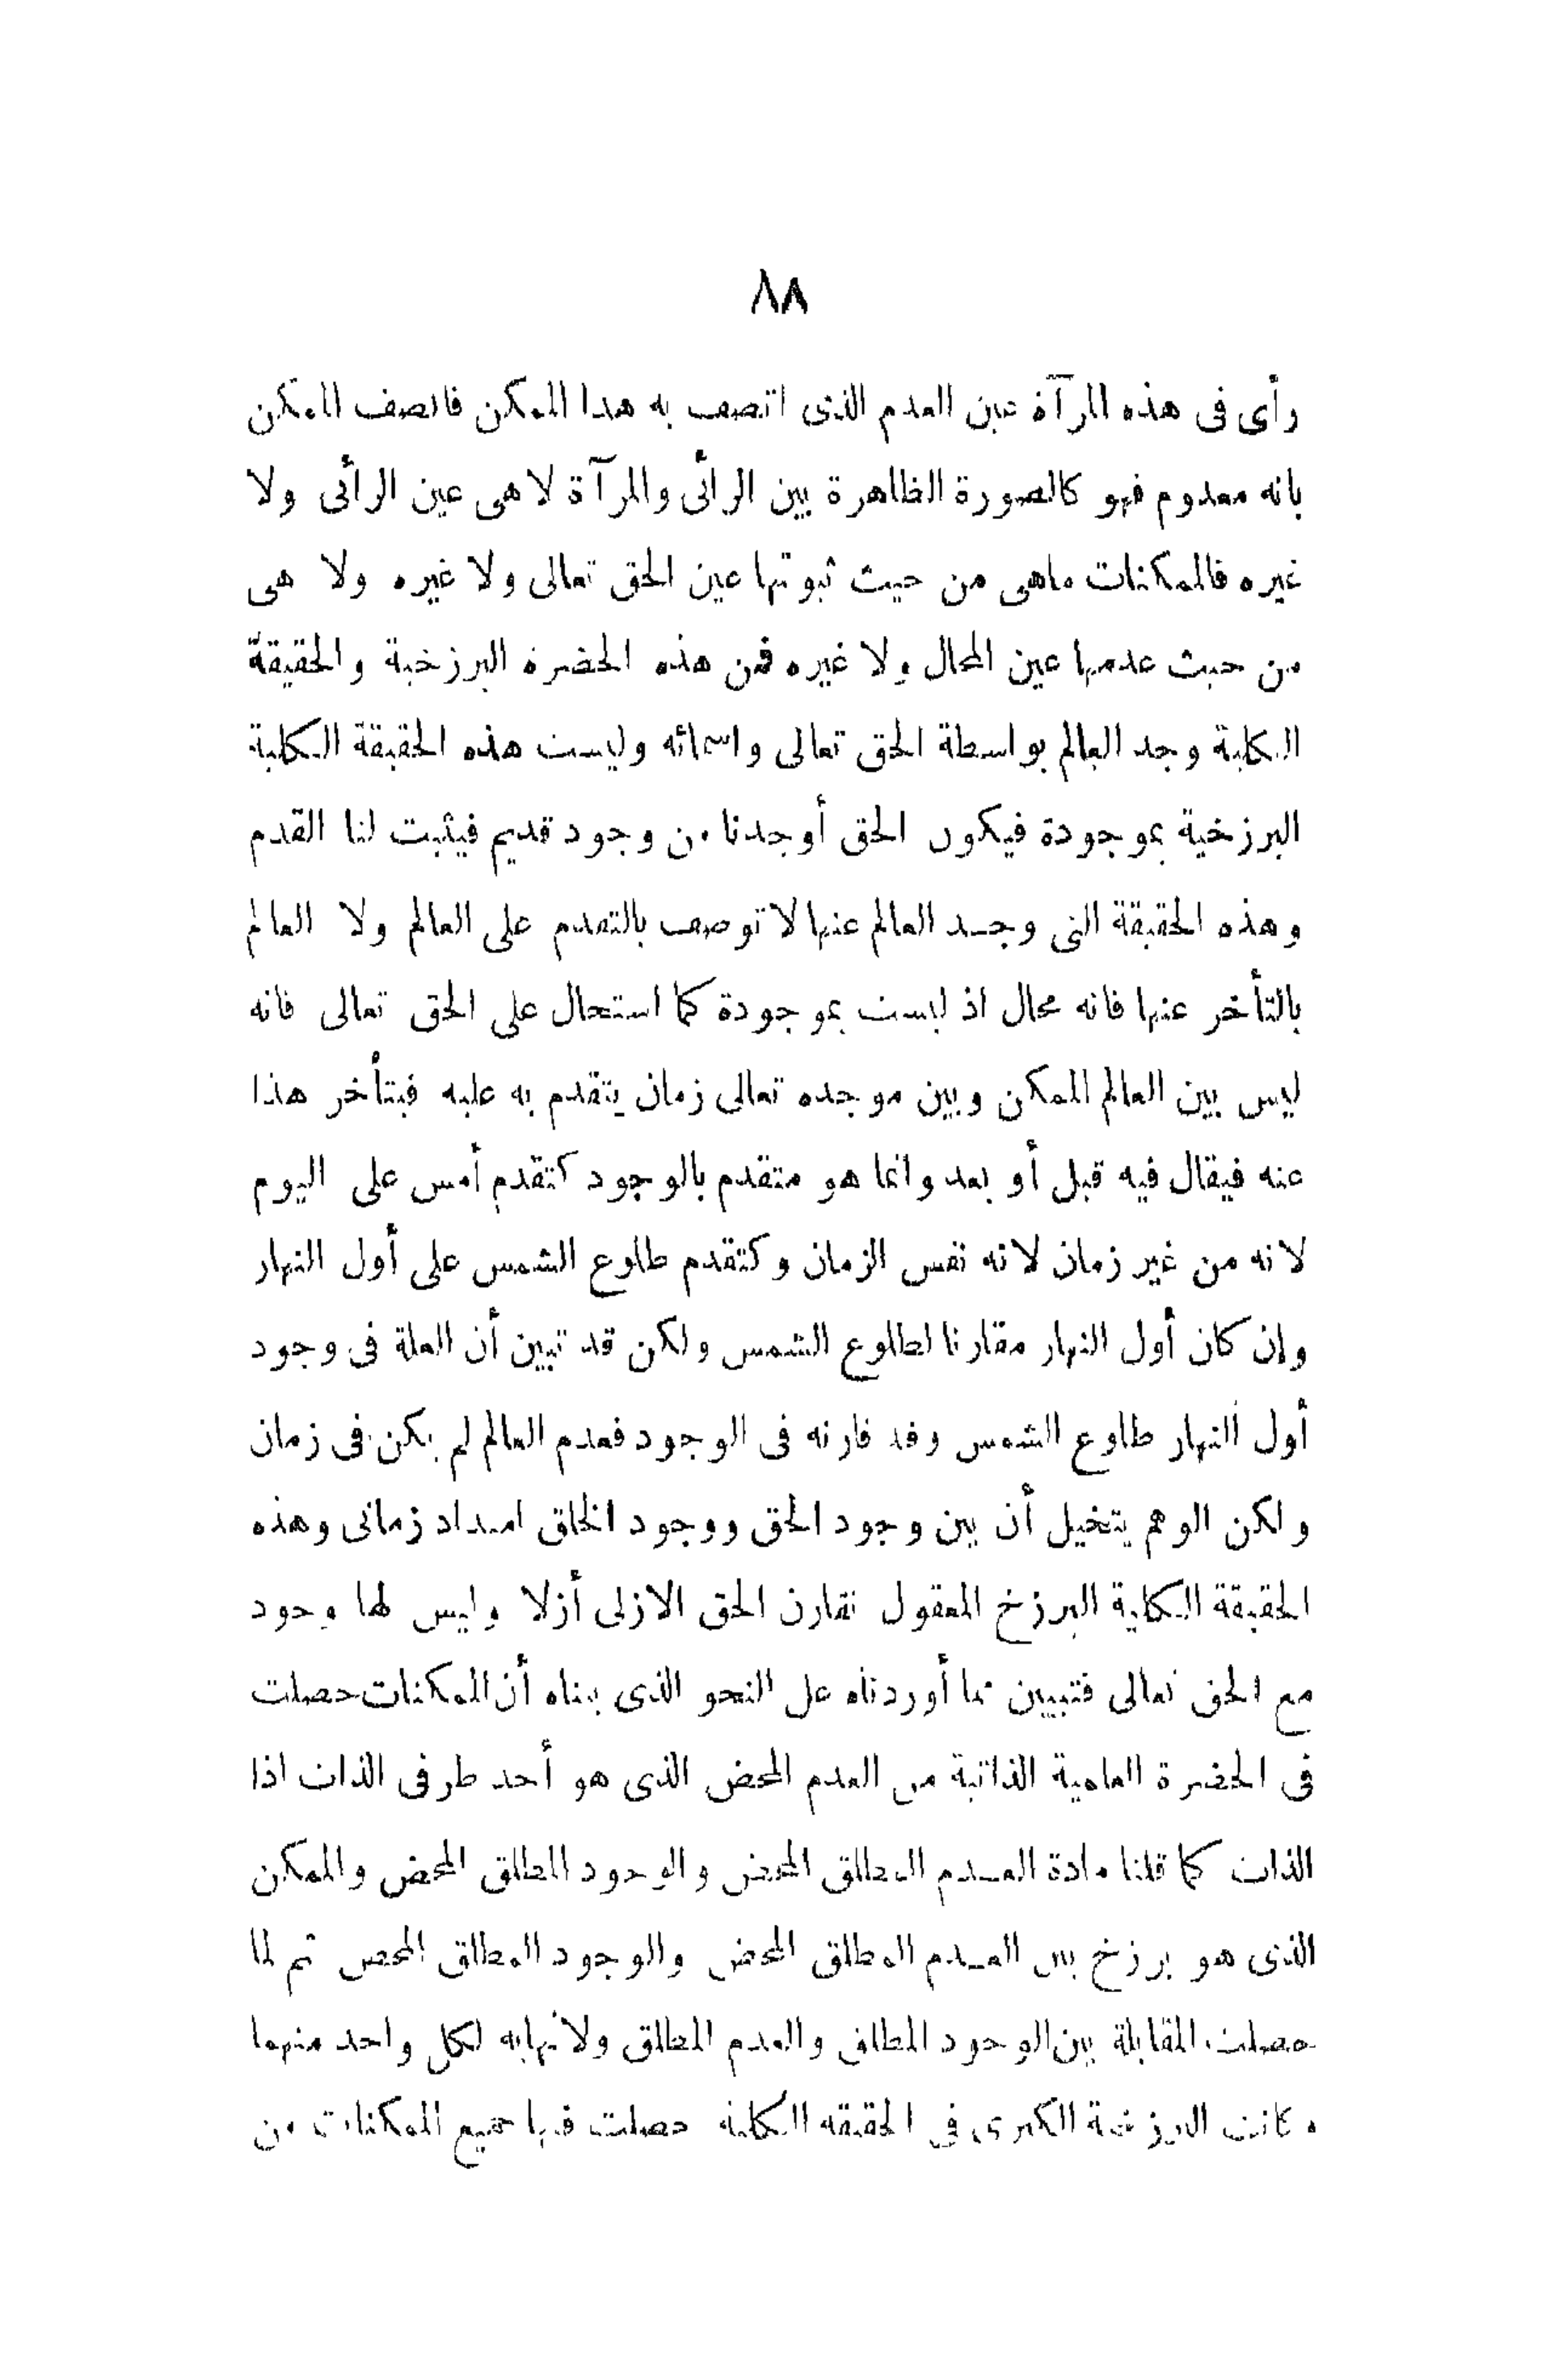 ٨٨
رأى فى هذه المرآة عين العدم الذى اتصف به هدا الممكن فاتصف الممكن
بانه معدوم فهو كالصورة الظاهرة بين الرأئى والمرآة لاهى عين الرأئى ولا
غيره فالممكنات ماهى من حيث ثبوتها عين الحق تعالى ولا غيره ولا هى
من حيث عدمها عين المحال ولا غيره فمن هذه الحضرة البرزخية والحقيقة
الكلية وجد العالم بواسطة الحق تعالى واسمائه وليست هذه الحقيقة الكلية
البرزخية بموجودة فيكون الحق أوجدنا من وجود قديم فيثبت لنا القدم
وهذه الحقيقة التى وجد العالم عنها لا توصف بالتقدم على العالم ولا العالم
بالتأخر عنها فانه محال اذ ليست بموجودة كما استحال على الحق تعالى فانه
ليس بين العالم الممكن وبين موجده تعالى زمان يتقدم به عليه فيتأخر هذا
عنه فيقال فيه قبل أو بعد وانما هو متقدم بالوجود كتقدم أمس على اليوم
لانه من غير زمان لانه نفس الزمان وكتقدم طلوع الشمس على أول النهار
وإن كان أول النهار مقارنا لطلوع الشمس ولكن قد تبين أن العلة فى وجود
أول النهار طلوع الشمس وقد قارنه فى الوجود فعدم العالم لم يكن فى زمان
ولكن الوهم يتخيل أن بين وجود الحق ووجود الخلق امتداد زمانى وهذه
الحقيقة الكلية البرزخ المعقول تقارن الحق الازلى أزلا وليس لها وجود
مع الحق تعالى فتبين مما أوردناه على النحو الذى بيناه أن الممكنات حصلت
فى الحضرة العلمية الذاتية من العدم المحض الذى هو أحد طرفى الذات اذا
الذات كما قلنا مادة العدم المطلق المحض والوجود المطلق المحض والممكن
الذى هو برزخ بين العدم المطلق المحض والوجود المطلق المحض ثم لما
حصلت المقابلة بين الوجود المطلق والعدم المطلق ولانهاية لكل واحد منهما
وكانت البرزخية الكبرى فى الحقيقة الكلية حصلت فيها جميع الممكنات من